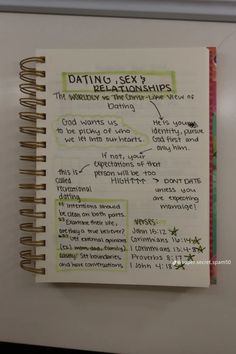 DATING, SEX &
RELATIONSHIPS
The WORLDLY vs The Christ-Like View of
Dating
God wants us
to be picky of who
we let into our hearts.
He is your
identity, pursue
God first and
only him.
If not, your
expectations of that
person will be too
HIGH↑↑↑
this is
called
recreational
dating
→ DON'T DATE
unless you
are expecting
marraige!
* Intentions should
be clean on both parts.
* Examine their life,
are they a true believer?
* Get external opinions
(ex) mom, dad, family)
Lastly: Set boundaries
and have conversations.
VERSES:
John 15:12 ☆
1 Corinthians 16:14 ☆
1 Corinthians 13:4-8 ☆
Proverbs 8:17 ☆
1 John 4:18 ☆
super.secret.spam50